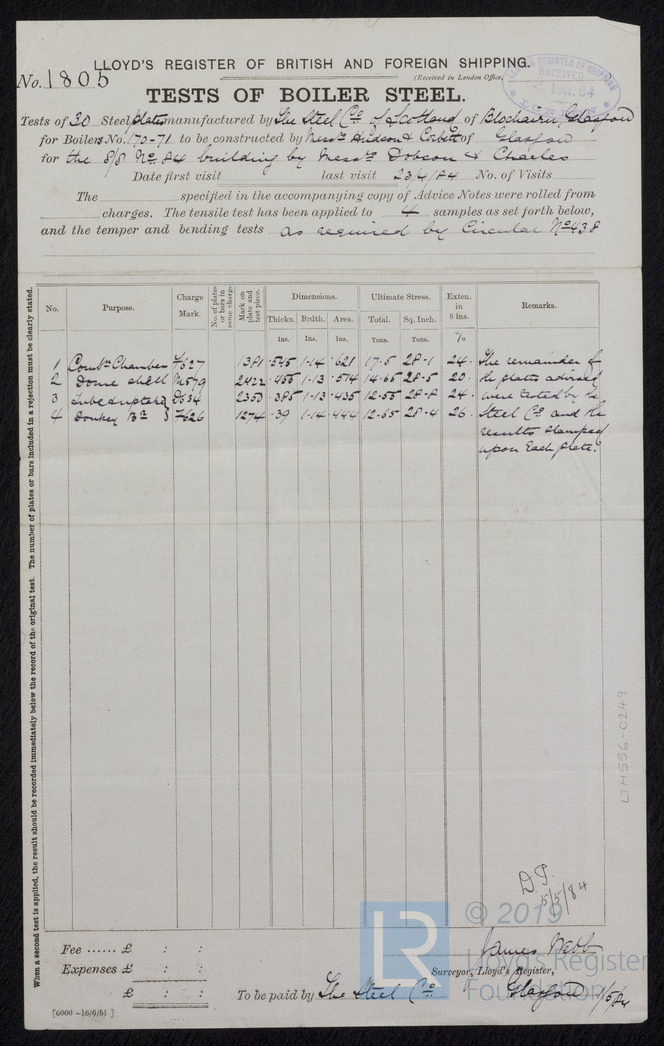 LLOYD'S REGISTER OF BRITISH AND FOREIGN SHIPPING.
No. 1805
(Received in London Office,
LLOYD'S REGISTER OF SHIPPING
RECEIVED
84
LONDON
TESTS OF BOILER STEEL.
Tests of 30 Steel plates manufactured by The Steel Co of Scotland of Blochairn, Glasgow
for Boilers No. 170-71 to be constructed by Messrs Hudson & Corbett of Glasgow
for the S/S No 84 building by Messrs Dobson & Charles
Date first visit last visit 23/4/84 No. of Visits
The specified in the accompanying copy of Advice Notes were rolled from
charges. The tensile test has been applied to 4 samples as set forth below,
and the temper and bending tests as required by Circular No 438
No. Purpose. Charge Mark. No. of plates or bars in same charge Mark on plate and test piece. Dimensions. Ultimate Stress. Exten. in 8 ins. Remarks.
Thickn. Brdth. Area. Total. Sq. Inch.
Ins. Ins. Ins. Tons. Tons. %
1 Combn Chamber 7627 1381 .545 1.14 .621 17.5 28.1 24. The remainder of
2 Dome shell 2422 .455 1.13 .514 14.65 28.5 20. the plates advised
3 Tube & uptake 634 2350 .385 1.13 .435 12.55 28.8 24. were tested by the
4 Donkey Br 7626 1274 .39 1.14 .444 12.65 28.4 26. Steel Co. and the
results stamped
upon Each plate.
When a second test is applied, the result should be recorded immediately below the record of the original test. The number of plates or bars included in a rejection must be clearly stated.
LH556-0249
5/5/84
© 2019
Lloyd's Register
Foundation
LR
Fee ...... £ : :
James Webb
Expenses £ : :
Surveyor, Lloyd's Register,
£ : :
To be paid by The Steel Co
Glasgow 1/5/84
[6000 -16/6/81 ]